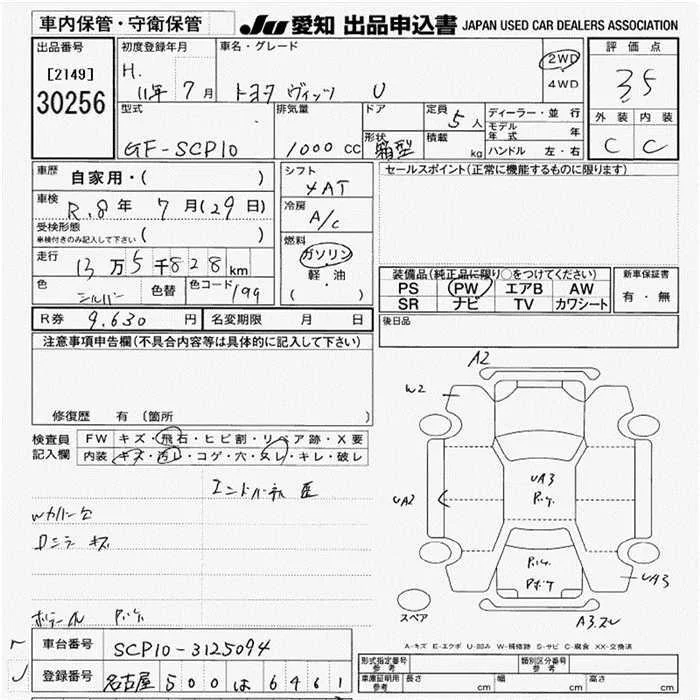 車内保管・守衛保管
JU 愛知 出品申込書 JAPAN USED CAR DEALERS ASSOCIATION
出品番号
[2149]
30256
初度登録年月
H.
11年 7月
車名・グレード
トヨタ ヴィッツ U
2WD
4WD
評価点
3.5
外装 内装
C C
型式
GF-SCP10
排気量
1000 CC
ドア
形状
箱型
定員 5人
積載 kg
ディーラー・並行
モデル年式 年
ハンドル 左・右
車歴 自家用・( )
車検 R.8年 7月(29日)
受検形態
車検付きのみ記入して下さい ( )
走行 13万5千828km
色 シルバー 色替 色コード 199
シフト
4AT
冷房
A/C
燃料
ガソリン
軽・油
( ・ )
セールスポイント(正常に機能するものに限ります)
装備品(純正品に限り○をつけてください)
PS PW エアB AW
SR ナビ TV カワシート
新車保証書
有・無
R券 9.630円 名変期限 月 日
後日品
注意事項申告欄(不具合内容等は具体的に記入して下さい)
修復歴 有 (箇所
検査員記入欄
FW キズ・飛石・ヒビ割・リペア跡・X要
内装 キズ・汚レ・コゲ・穴・スレ・キレ・破レ
Wカバー
キズ
A2
W2
UA2
UA3
UA3
スペア
A-キズ E-エクボ U-凹み W-補修跡 S-サビ C-腐食 XX-交換済
車台番号 SCP10-3125094
登録番号 名古屋 500 は 6461
形式指定番号
参考
類別区分番号
参考
車庫証明用
参考
長さ cm 幅 cm 高さ cm